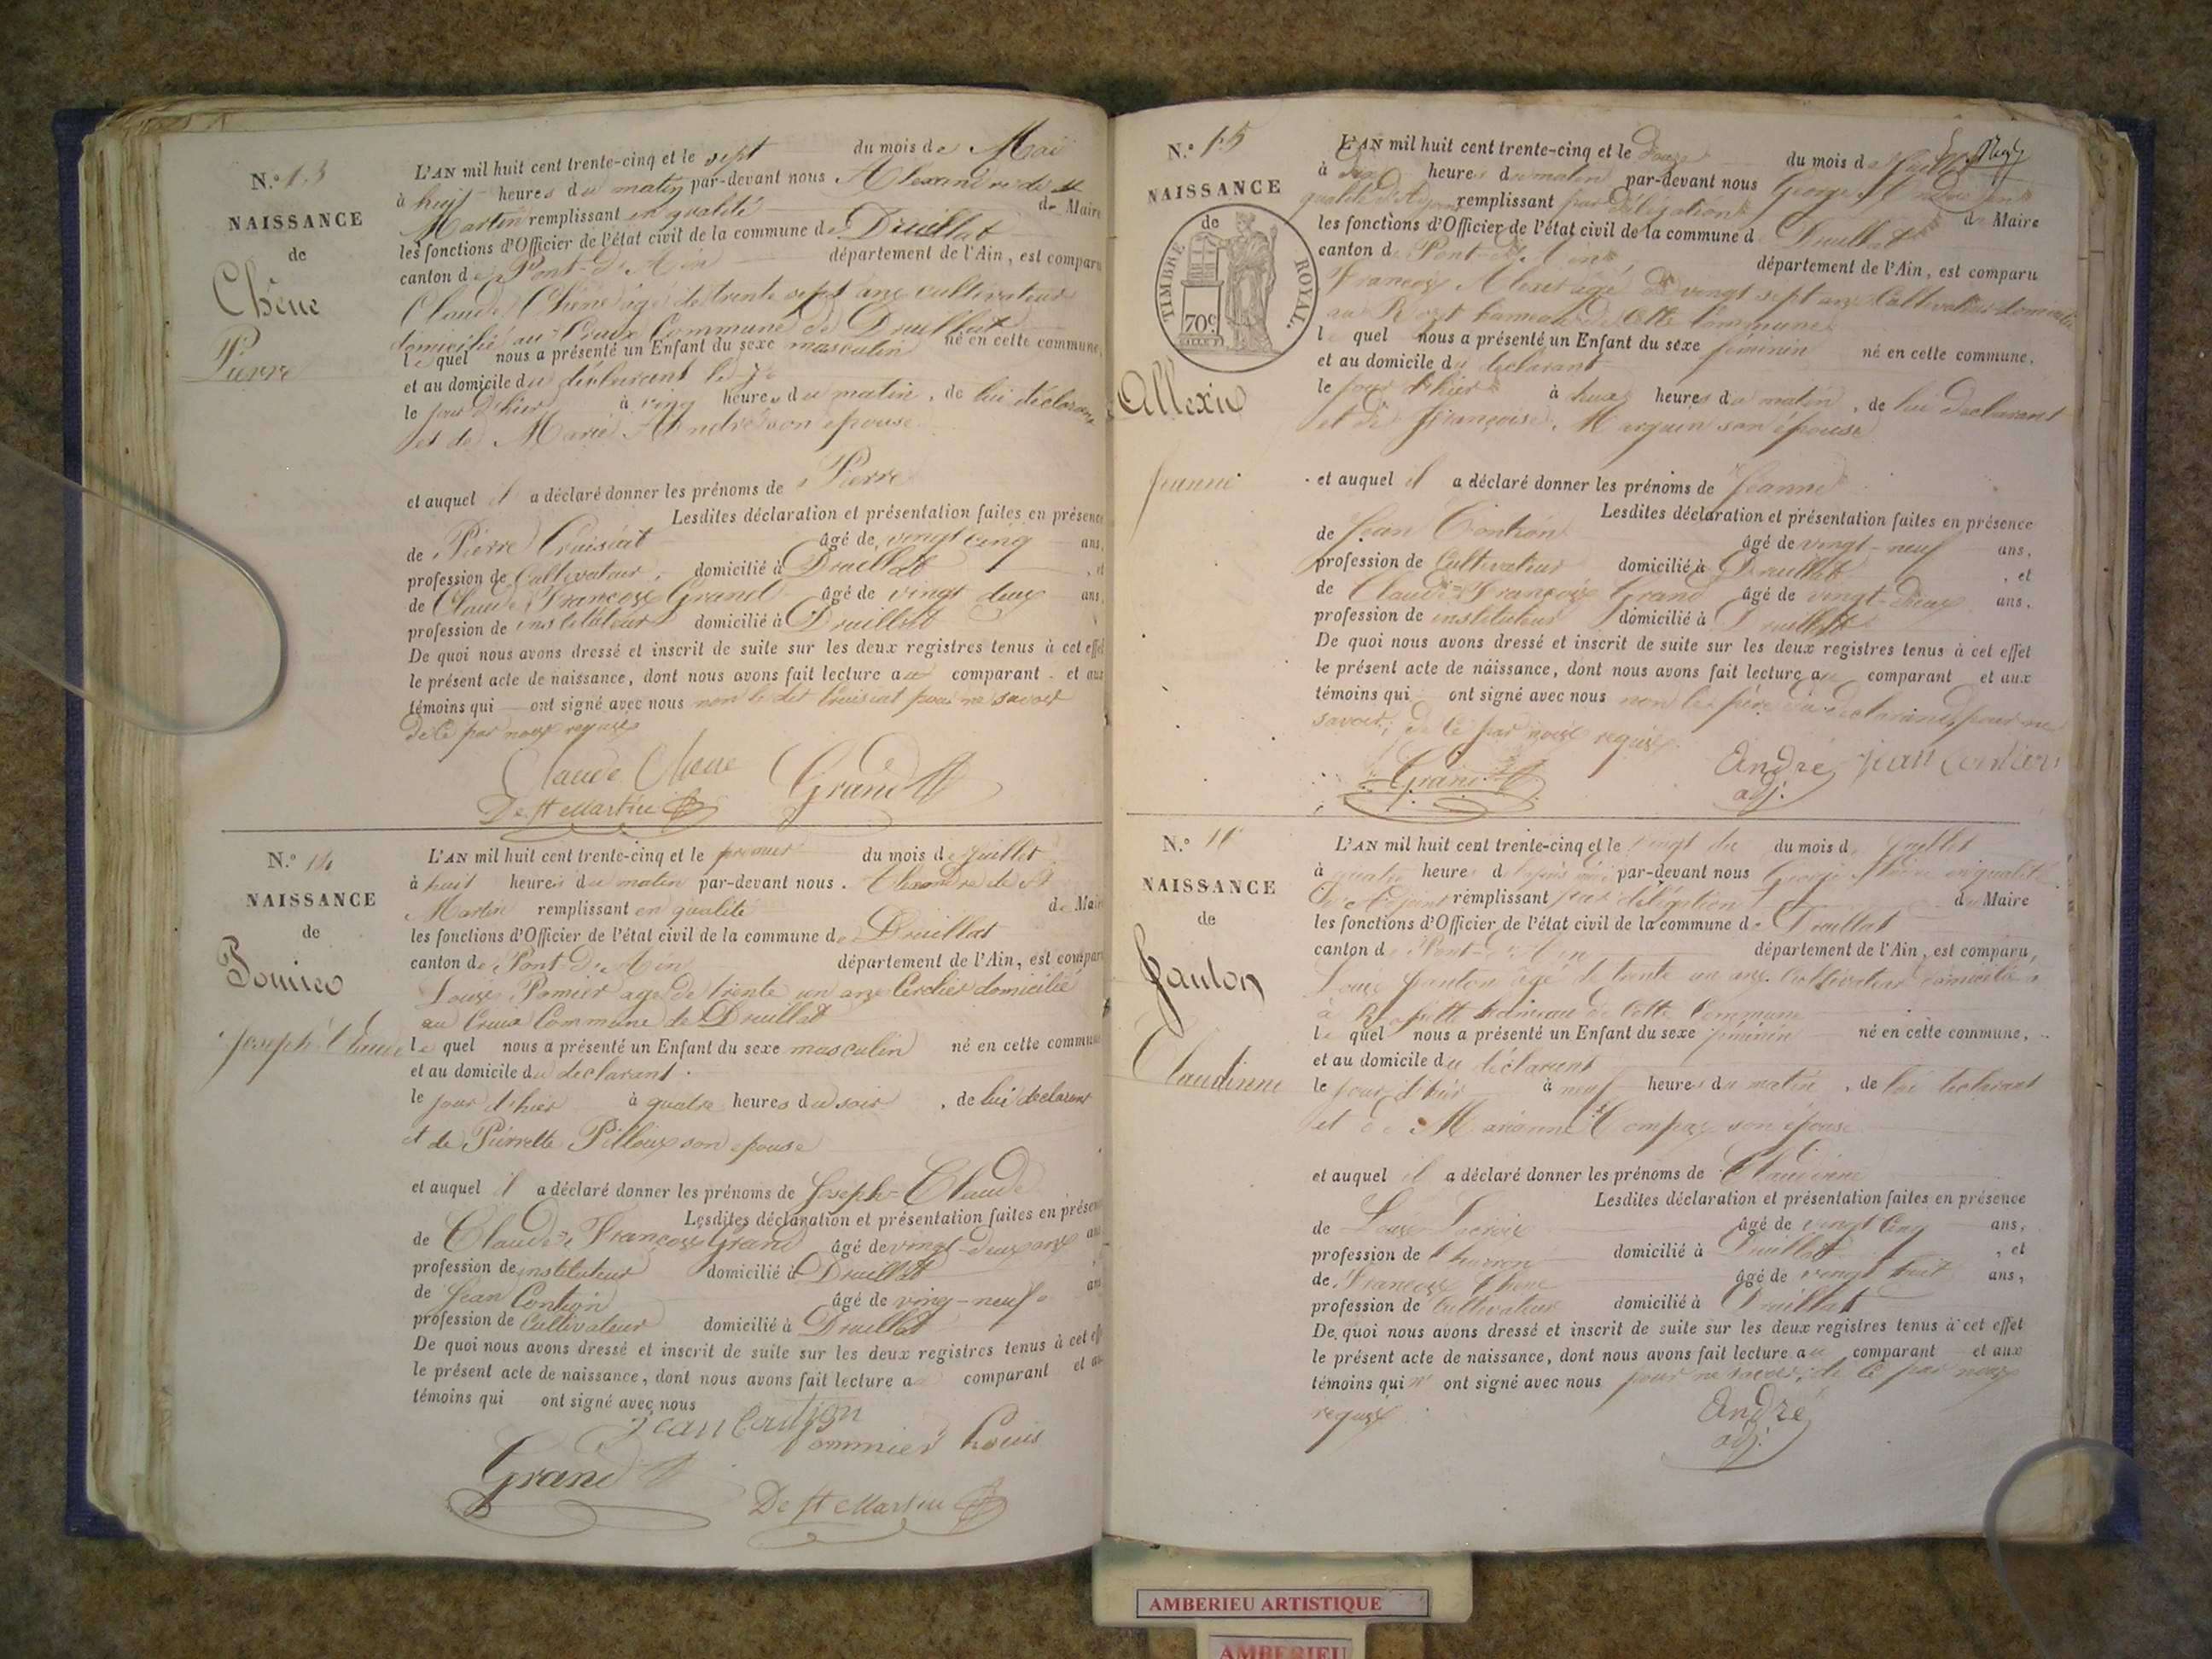 N.º 13
NAISSANCE
de
Chêne
Pierre
L'AN mil huit cent trente-cinq et le sept du mois de Mai
à huit heures du matin par-devant nous Alexandre de St
Martin remplissant en qualité de Maire
les fonctions d'Officier de l'état civil de la commune de Druillat
canton de Pont-d'Ain département de l'Ain, est comparu
Claude Chêne âgé de trente sept ans cultivateur
domicilié au Creux Commune de Druillat
le quel nous a présenté un Enfant du sexe masculin né en cette commune,
et au domicile du déclarant
le jour d'hier à cinq heures du matin, de lui déclarant
et de Marie André son épouse
et auquel il a déclaré donner les prénoms de Pierre
Lesdites déclaration et présentation faites en présence
de Pierre Cruisiat âgé de vingt cinq ans,
profession de Cultivateur, domicilié à Druillat, et
de Claude François Grand âgé de vingt deux ans,
profession de instituteur domicilié à Druillat
De quoi nous avons dressé et inscrit de suite sur les deux registres tenus à cet effet
le présent acte de naissance, dont nous avons fait lecture au comparant et aux
témoins qui ont signé avec nous non le dit Cruisiat pour ne savoir
de ce par nous requis
Claude Chene Grand
De St Martin
N.º 14
NAISSANCE
de
Pomier
Joseph Claude
L'AN mil huit cent trente-cinq et le premier du mois de Juillet
à huit heures du matin par-devant nous Alexandre de St
Martin remplissant en qualité de Maire
les fonctions d'Officier de l'état civil de la commune de Druillat
canton de Pont-d'Ain département de l'Ain, est comparu
Louis Pomier age de trente un ans Cerclier domicilié
au Creux Commune de Druillat
le quel nous a présenté un Enfant du sexe masculin né en cette commune
et au domicile du déclarant
le jour d'hier à quatre heures du soir, de lui déclarant
et de Pierrette Pilloux son épouse
et auquel il a déclaré donner les prénoms de Joseph-Claude
Lesdites déclaration et présentation faites en présence
de Claude François Grand âgé de vingt-deux ans ans
profession de instituteur domicilié à Druillat
de Jean Contion âgé de ving-neuf ans
profession de Cultivateur domicilié à Druillat
De quoi nous avons dressé et inscrit de suite sur les deux registres tenus à cet effet
le présent acte de naissance, dont nous avons fait lecture au comparant et aux
témoins qui ont signé avec nous
Jean Contion
Pommier Louis
Grand
De St Martin
N.º 15
NAISSANCE
de
TIMBRE ROYAL.
70c
Allexis
Jeanne
L'AN mil huit cent trente-cinq et le douze du mois de Juillet
à dix heures du matin par-devant nous George André en
qualité d'Adjoint remplissant par délégation de Maire
les fonctions d'Officier de l'état civil de la commune d Druillat
canton de Pont-d'Ain département de l'Ain, est comparu
François Alexis agé de vingt sept ans Cultivateur domicilié
au hameau de Cette Commune
le quel nous a présenté un Enfant du sexe féminin né en cette commune.
et au domicile du déclarant
le jour d'hier à heures du matin, de lui déclarant
et de Françoise Marguin son épouse
et auquel il a déclaré donner les prénoms de Jeanne
Lesdites déclaration et présentation faites en présence
de Jean Contion âgé de vingt-neuf ans,
profession de Cultivateur domicilié à Druillat, et
de Claude-François Grand âgé de vingt-deux ans,
profession de instituteur domicilié à Druillat
De quoi nous avons dressé et inscrit de suite sur les deux registres tenus à cet effet
le présent acte de naissance, dont nous avons fait lecture au comparant et aux
témoins qui ont signé avec nous non le père du déclarant pour ne
savoir, de ce par nous requis
Grand André Jean Contion
adj.
N.º 16
NAISSANCE
de
Janton
Claudinne
L'AN mil huit cent trente-cinq et le vingt du mois de Juillet
à quatre heures du par-devant nous George André en qualité
d'Adjoint remplissant par délégation de Maire
les fonctions d'Officier de l'état civil de la commune de Druillat
canton de Pont-d'Ain département de l'Ain, est comparu,
Louis Janton âgé de trente un ans Cultivateur domicilié
à hameau de Cette Commune
le quel nous a présenté un Enfant du sexe féminin né en cette commune,
et au domicile du déclarant
le jour d'hier à neuf heures du matin, de lui déclarant
et de Marianne Compas son épouse
et auquel il a déclaré donner les prénoms de Claudinne
Lesdites déclaration et présentation faites en présence
de Louis Lacroix âgé de vingt Cinq ans,
profession de Charron domicilié à Druillat, et
de François Chêne âgé de vingt huit ans,
profession de Cultivateur domicilié à Druillat
De quoi nous avons dressé et inscrit de suite sur les deux registres tenus à cet effet
le présent acte de naissance, dont nous avons fait lecture au comparant et aux
témoins qui n'ont signé avec nous pour ne savoir, de ce par nous
requis
André
adj.
AMBERIEU ARTISTIQUE
AMBERIEU